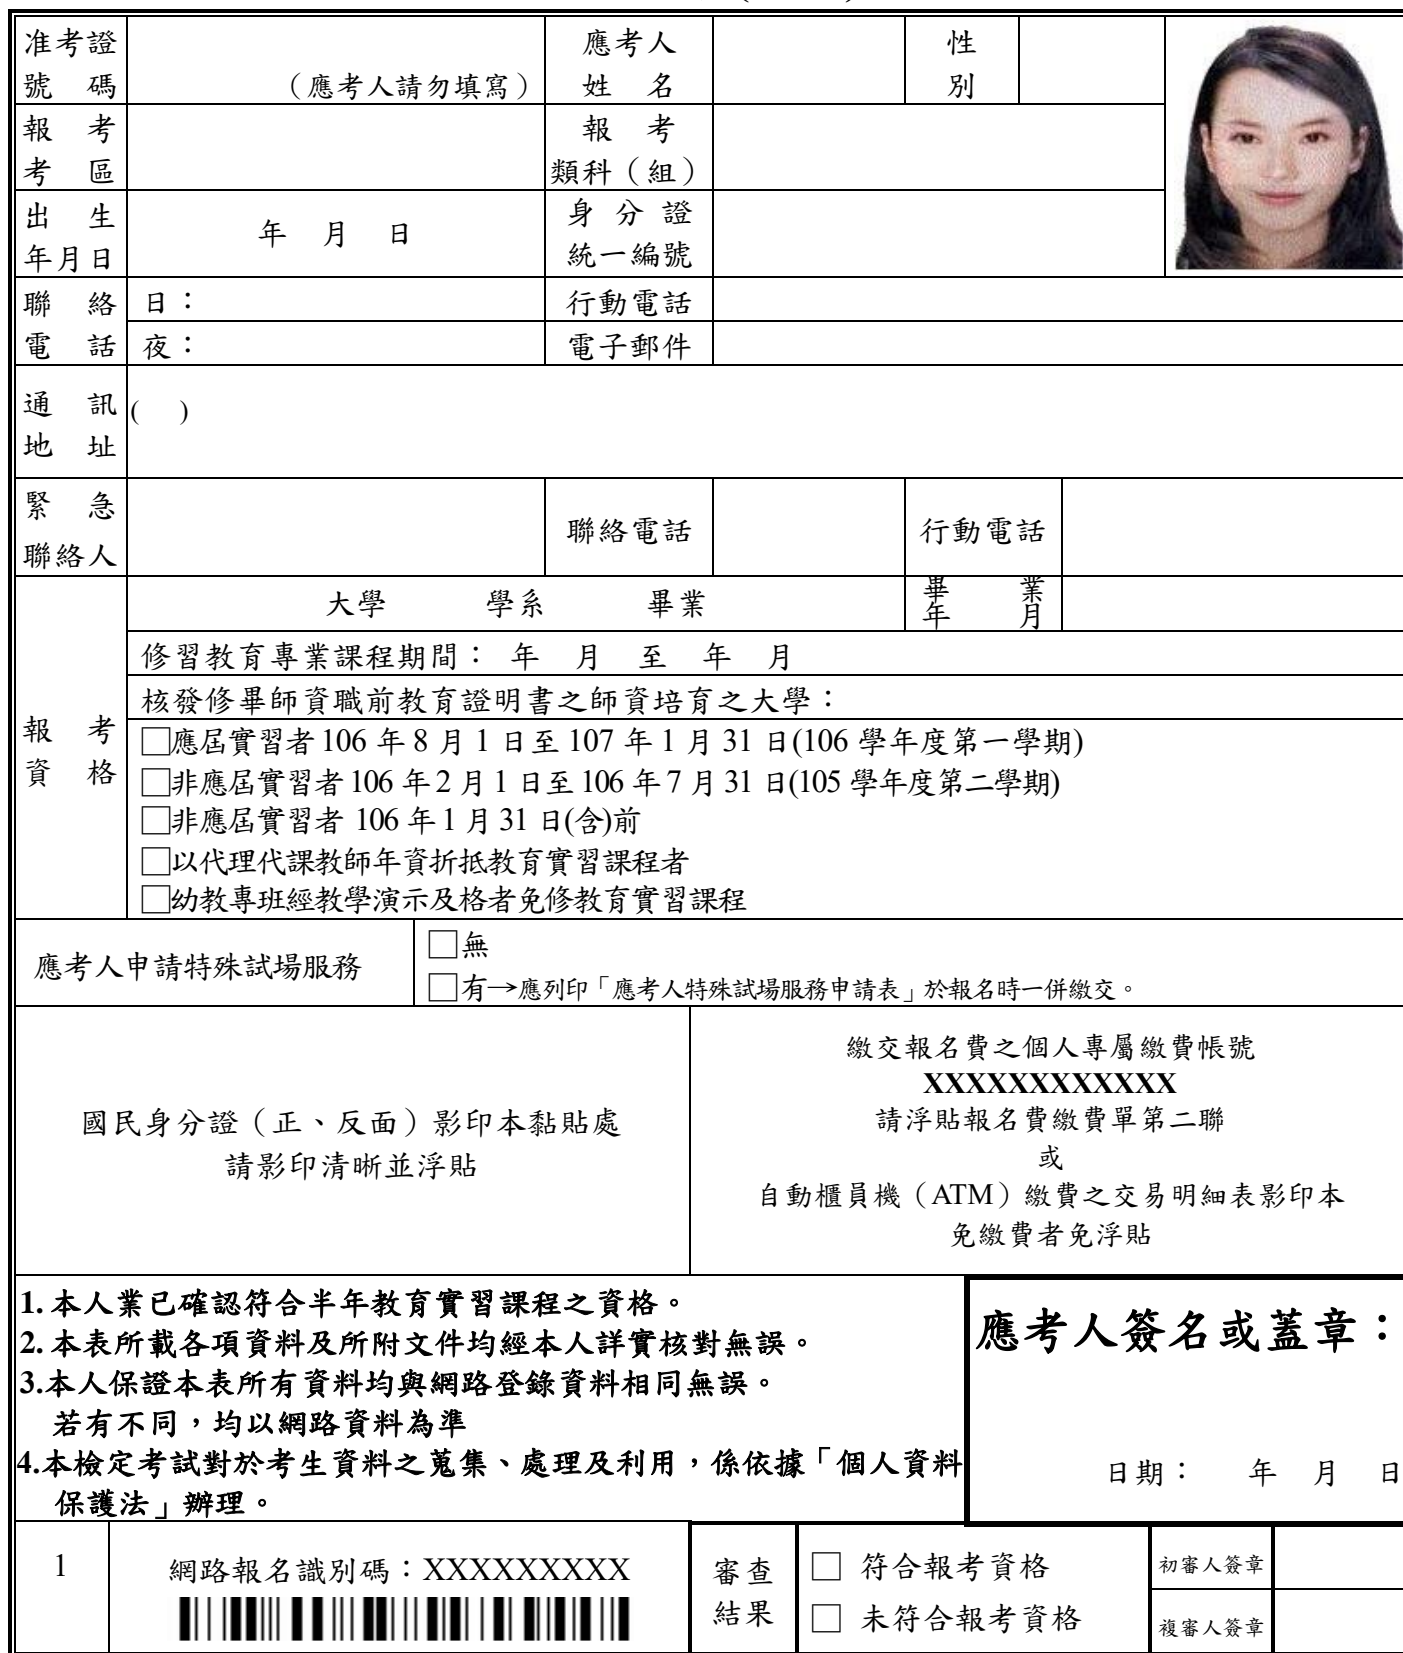 准考證
號 碼
（應考人請勿填寫）
應考人
姓 名
性
別
報 考
考 區
報 考
類科（組）
出 生
年月日
年 月 日
身 分 證
統一編號
聯 絡
電 話
日：
行動電話
夜：
電子郵件
通 訊
地 址
( )
緊 急
聯絡人
聯絡電話
行動電話
報 考
資 格
大學 學系 畢業
畢 業
年 月
修習教育專業課程期間： 年 月 至 年 月
核發修畢師資職前教育證明書之師資培育之大學：
□應屆實習者 106 年 8 月 1 日至 107 年 1 月 31 日(106 學年度第一學期)
□非應屆實習者 106 年 2 月 1 日至 106 年 7 月 31 日(105 學年度第二學期)
□非應屆實習者 106 年 1 月 31 日(含)前
□以代理代課教師年資折抵教育實習課程者
□幼教專班經教學演示及格者免修教育實習課程
應考人申請特殊試場服務
□無
□有→應列印「應考人特殊試場服務申請表」於報名時一併繳交。
國民身分證（正、反面）影印本黏貼處
請影印清晰並浮貼
繳交報名費之個人專屬繳費帳號
XXXXXXXXXXXX
請浮貼報名費繳費單第二聯
或
自動櫃員機（ATM）繳費之交易明細表影印本
免繳費者免浮貼
1. 本人業已確認符合半年教育實習課程之資格。
2. 本表所載各項資料及所附文件均經本人詳實核對無誤。
3.本人保證本表所有資料均與網路登錄資料相同無誤。
若有不同，均以網路資料為準
4.本檢定考試對於考生資料之蒐集、處理及利用，係依據「個人資料
保護法」辦理。
應考人簽名或蓋章：
日期： 年 月 日
1
網路報名識別碼：XXXXXXXXX
審查
結果
□ 符合報考資格
□ 未符合報考資格
初審人簽章
複審人簽章